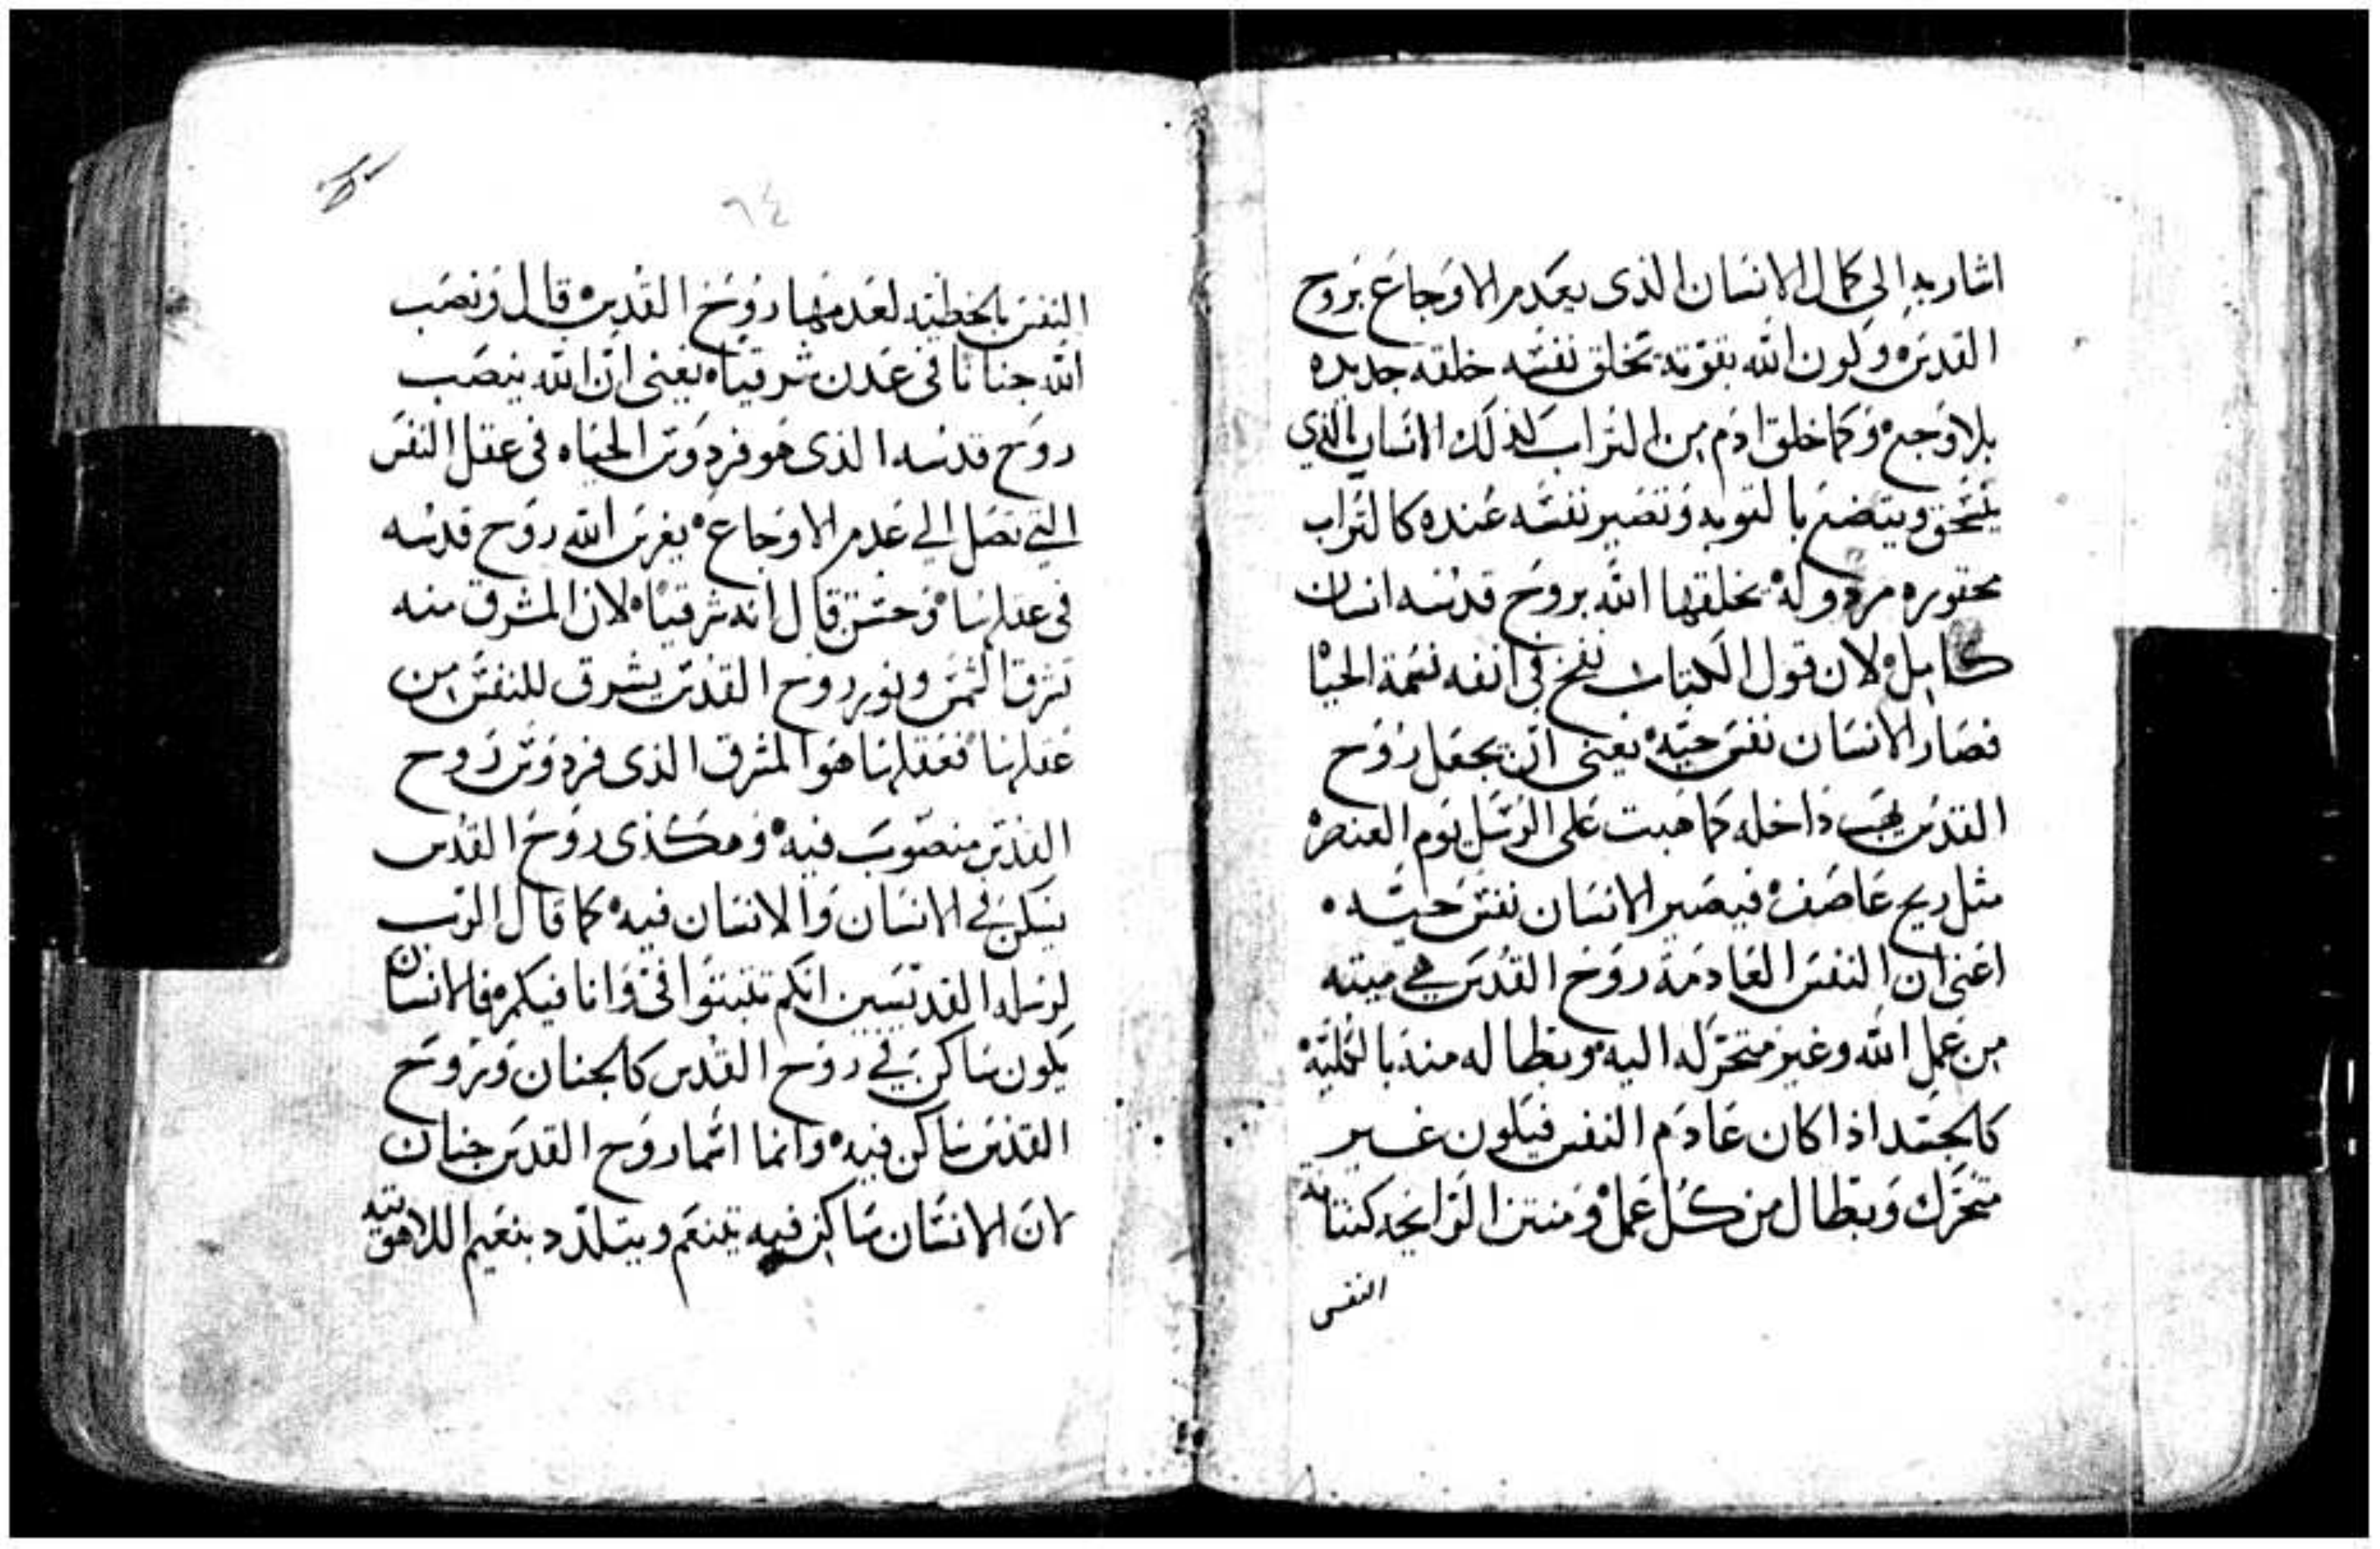 اشار به الى كمال الانسان الذى يعدم الاوجاع بروح
القدس وكون الله بقوته تخلق نفسه خلقة جديده
بلا وجع وكما خلق ادم من التراب كذلك الانسان الذي
ينسحق ويتضع بالتوبه وتصير نفسه عنده كالتراب
محقوره مردوله يخلقها الله بروح قدسه انسان
كامل لان قول الكتاب نفخ في انفه نسمة الحيا
فصار الانسان نفس حيه يعنى ان يجعل روح
القدس يهب داخله كما هبت على الرسل يوم العنصره
مثل ريح عاصف فيصير الانسان نفس حيه
اعنى ان النفس العادمة روح القدس هي ميته
من عمل الله وغير متحركه اليه وبطاله منه بالكليه
كالجسد اذا كان عادم النفس فيكون غير
متحرك وبطال من كل عمل ومنتن الرايحه كنتانه
النفس
٩٤
النفس بالخطيه لعدمها روح القدس قال ونصب
الله جنانا فى عدن شرقيا يعنى ان الله ينصب
روح قدسه الذى هو فردوس الحياه فى عقل النفس
التي تصل الي عدم الاوجاع يغرس الله روح قدسه
فى عقلها وحسن قال انه شرقيا لان المشرق منه
تشرق الشمس ونور روح القدس يشرق للنفس من
عقلها فعقلها هو المشرق الذى فردوس روح
القدس منصوب فيه وهكذى روح القدس
يسكن في الانسان والانسان فيه كما قال الرب
لرسله القديسين انكم تثبتوا فى وانا فيكم فالانسان
يكون ساكن في روح القدس كالجنان وروح
القدس ساكن فيه وانما اسما روح القدس جنان
لان الانسان ساكن فيه يتنعم ويتلدد بنعيم اللاهوتيه